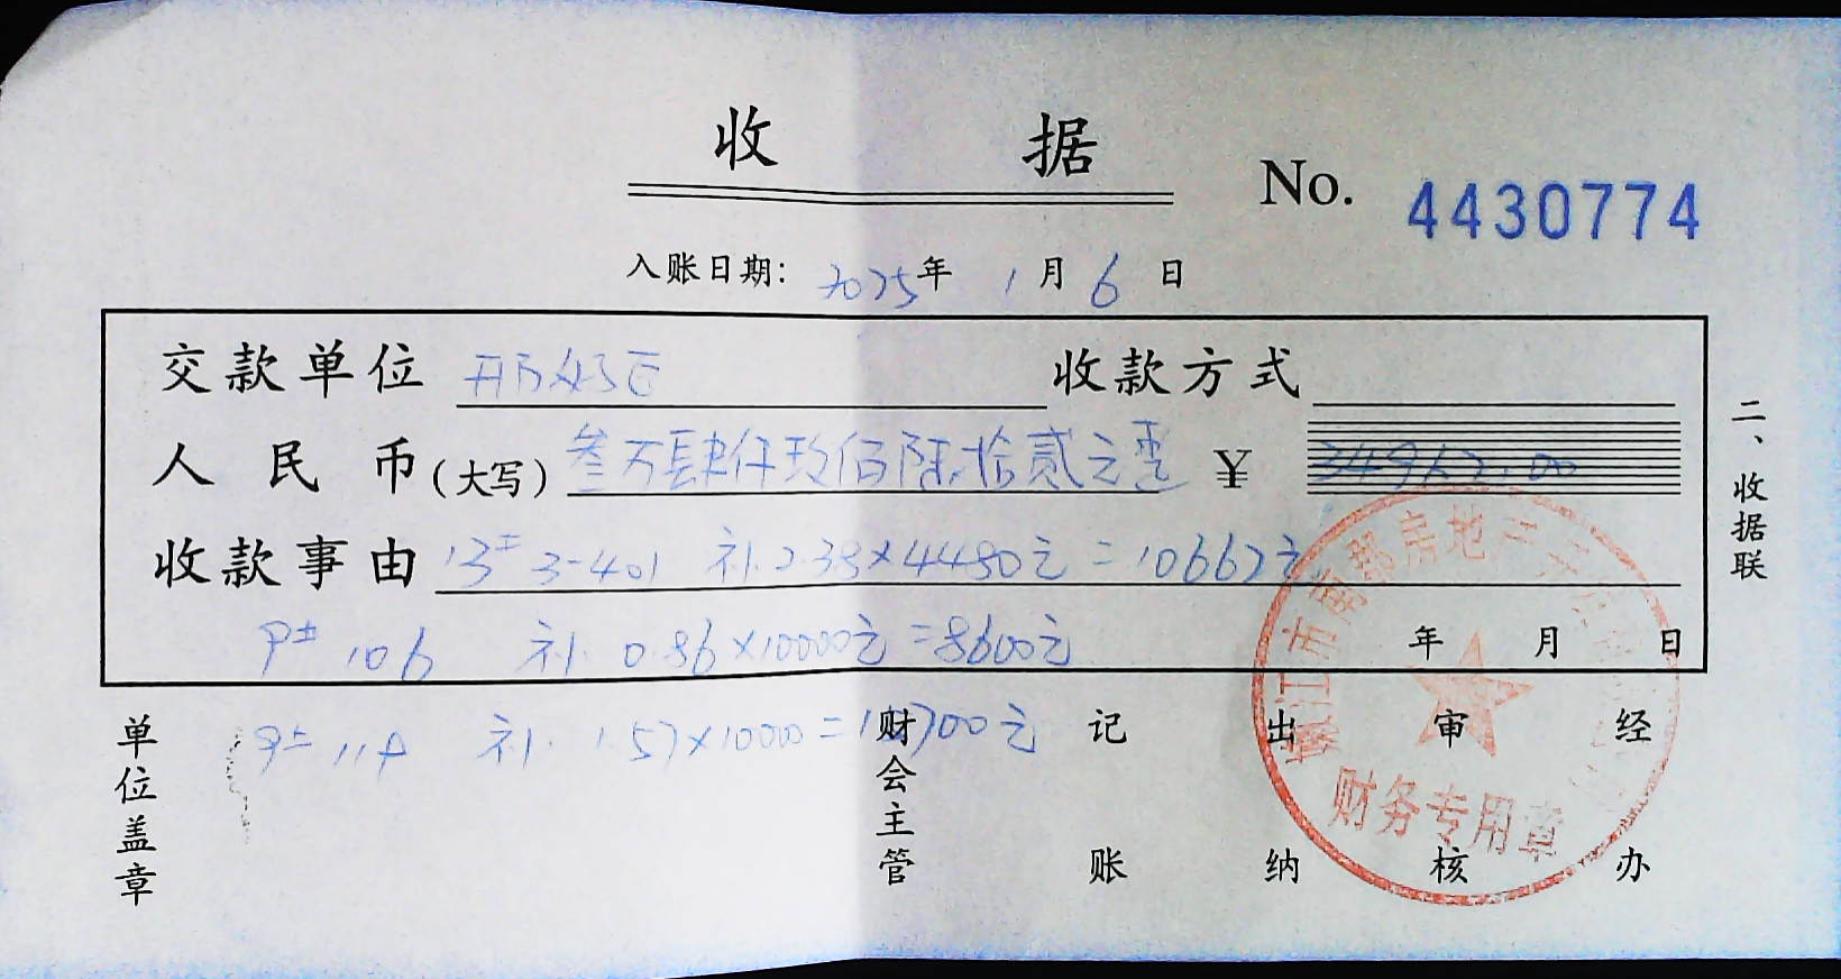 收 据
No. 4430774
入账日期: 2025年 1月 6日
交款单位 邢好 收款方式
人民币(大写) 叁万肆仟玖佰陆拾贰元整 ¥ 34962.00
收款事由 13# 3-401 补2.38×4480元=10662元
9# 106 补.0.86×10000元=8600元
年 月 日
9# 114 补.1.57×10000=15700元
单位盖章 财会主管 记账 出纳 审核 经办
二、收据联
江市南郡房地
财务专用章